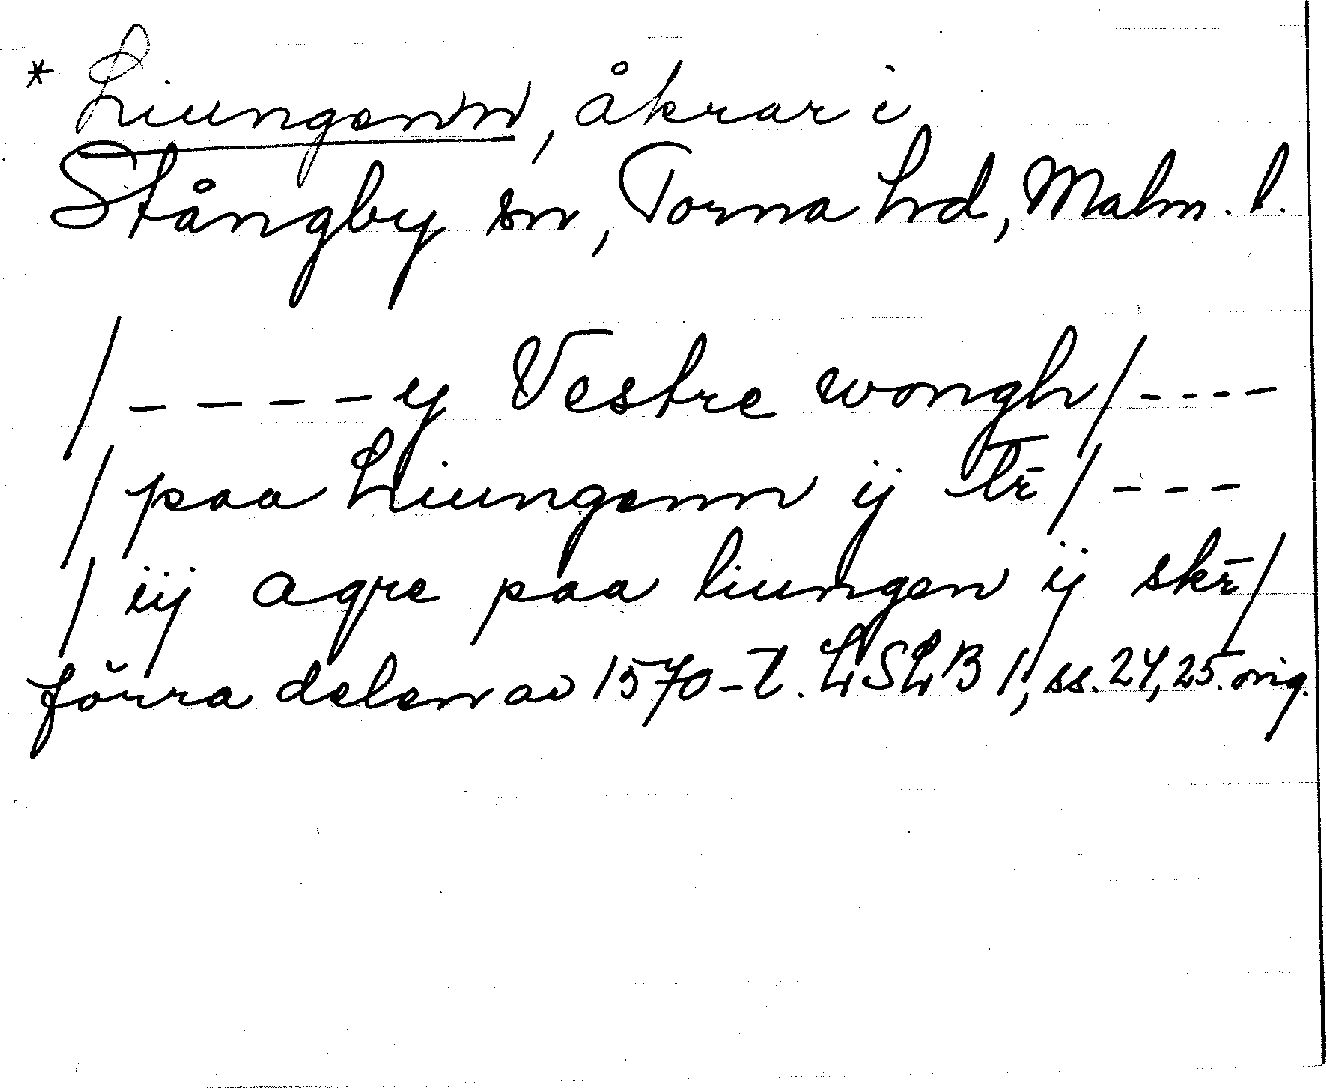 * Liungenn, åkrar i
Stångby sn, Torna hd, Malm. l.
/ - - - - y Vestre wongh / - - - -
/ paa Liungenn ij tr̄ / - - -
/ iij agre paa liungen ij skr̄ /
förra delen av 1570-t. LSLB 1, ss. 24, 25. orig.